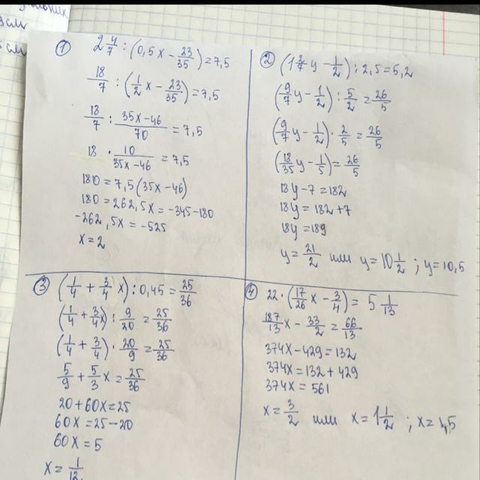 ① 2 4/7 : (0,5x - 23/35) = 7,5
18/7 : (1/2 x - 23/35) = 7,5
18/7 : 35x-46/70 = 7,5
18 · 10/35x-46 = 7,5
180 = 7,5 (35x-46)
180 = 262,5x = -345-180
-262,5x = -525
x = 2
② (1 2/7 y - 1/2) : 2,5 = 5,2
(9/7 y - 1/2) : 5/2 = 26/5
(9/7 y - 1/2) · 2/5 = 26/5
(18/35 y - 1/5) = 26/5
18y - 7 = 182
18y = 182 + 7
18y = 189
y = 21/2 или y = 10 1/2 ; y = 10,5
③ (1/4 + 3/4 x) : 0,45 = 25/36
(1/4 + 3/4 x) : 9/20 = 25/36
(1/4 + 3/4) · 20/9 = 25/36
5/9 + 5/3 x = 25/36
20 + 60x = 25
60x = 25 - 20
60x = 5
x = 1/12
④ 22 · (17/26 x - 3/4) = 5 1/13
187/13 x - 33/2 = 66/13
374x - 429 = 132
374x = 132 + 429
374x = 561
x = 3/2 или x = 1 1/2 ; x = 1,5